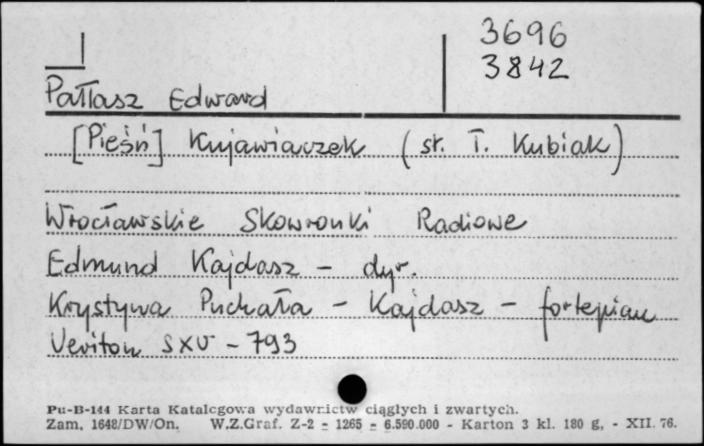 3696
3842
Pałłasz Edward
[Pieśń] Kujawiaczek (sł. T. Kubiak)
Wrocławskie Skowronki Radiowe
Edmund Kajdasz - dyr.
Krystyna Puchała - Kajdasz - fortepian
Veriton SXV - 793
Pu-B-144 Karta Katalogowa wydawnictw ciągłych i zwartych.
Zam. 1648/DW/On. W.Z.Graf. Z-2 z 1265 z 6.590.000 - Karton 3 kl. 180 g. - XII. 76.